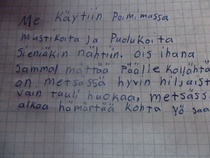 Me Käytiin Poimimassa
Mustikoita ja Puolukoita
Sieniäkin nähtiin. Ois ihana
Sammal mättää Päälle
on metsässä hyvin hiljaist
vain tuuli huokaa, metsäss
alkaa hämärtää kohta Yö saa